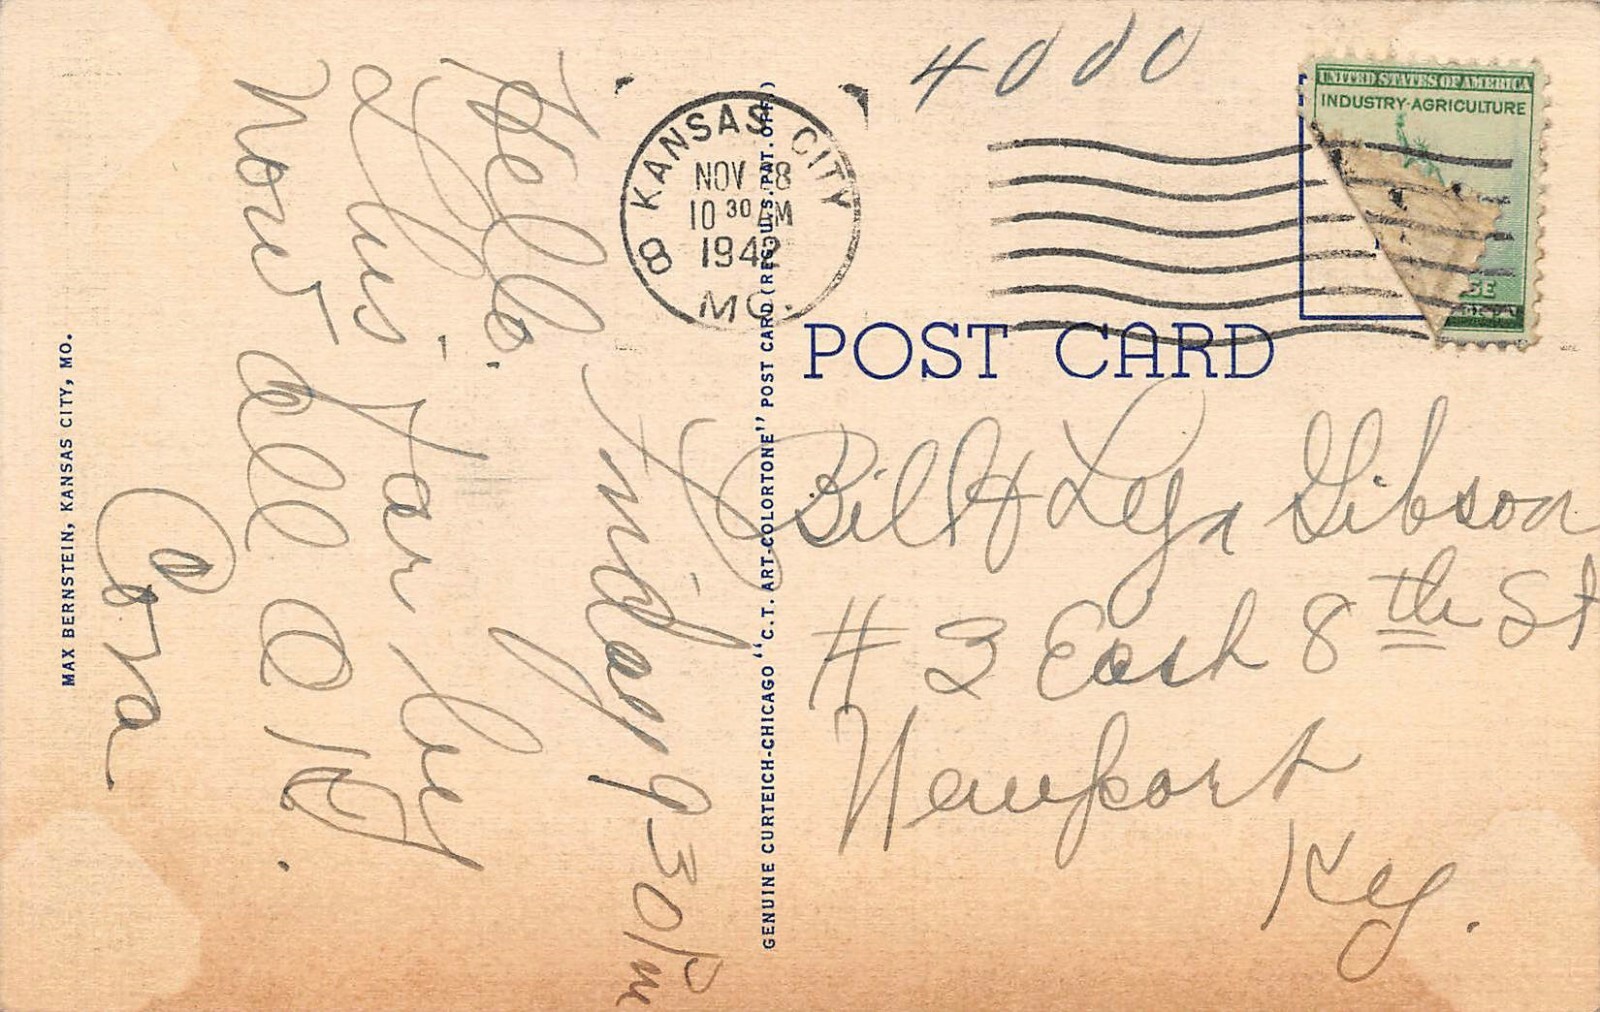 4000
UNITED STATES OF AMERICA
INDUSTRY-AGRICULTURE
SE
KANSAS CITY
NOV 8
10 30 AM
1942
MO.
8
POST CARD
Friday 9 30 Pm
Hello.
Thus far by
Now all O.K.
Cora
Bill & Lega Gibson
# 3 East 8th St
Newport
Ky.
GENUINE CURTEICH-CHICAGO "C.T. ART-COLORTONE" POST CARD (REG. U.S. PAT. OFF.)
MAX BERNSTEIN, KANSAS CITY, MO.